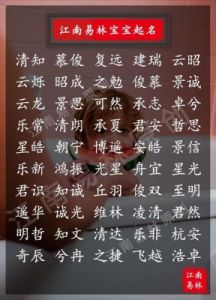 江南易林宝宝起名
清知 慕俊 复远 建瑞 云昭
云烁 昭成 之勉 俊慕 景诚
云龙 景思 可然 承志 卓兮
乐常 清朗 承夏 君安 哲思
星皓 朝宁 博远 安皓 景信
乐新 鸿振 光星 舟宜 星光
君识 知诚 丘羽 俊双 至明
遥华 诚光 维林 凌清 君然
明哲 知文 清达 乐非 杭安
奇辰 兮冉 之捷 飞越 浩卓
江南
易林